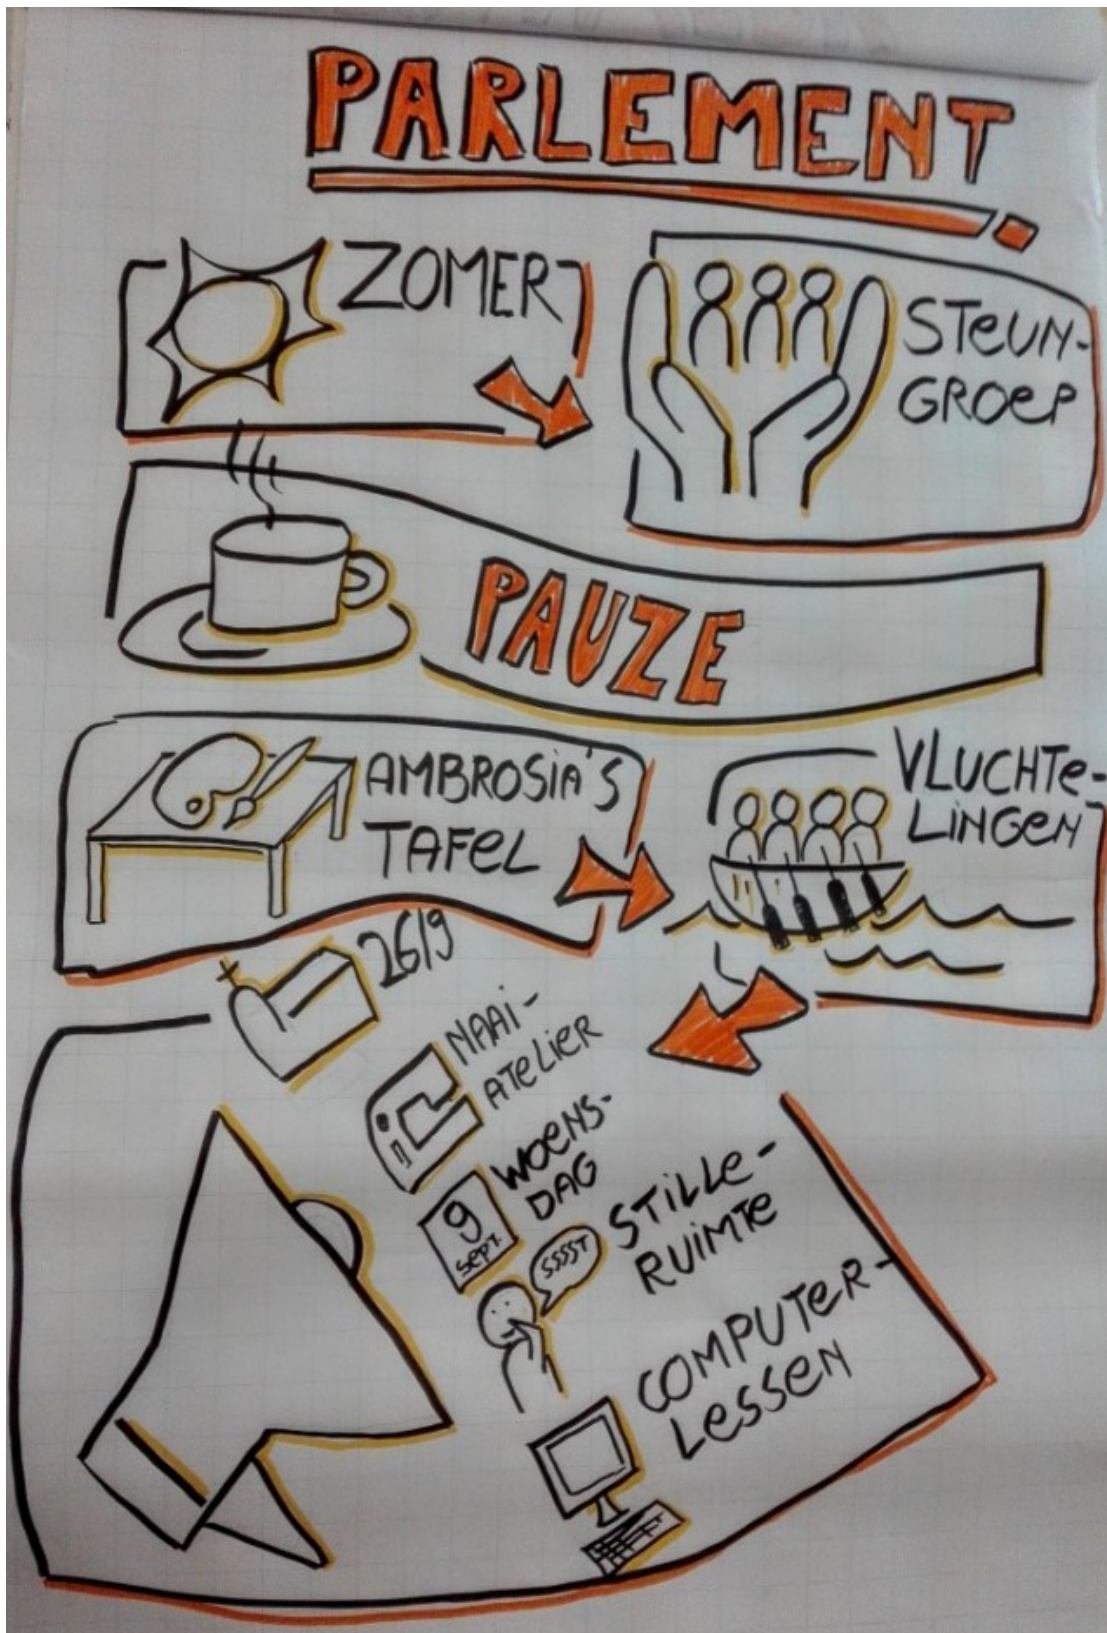 PARLEMENT
ZOMER
STEUN-
GROEP
PAUZE
AMBROSIA'S
TAFEL
VLUCHTE-
LINGEN
26/9
NAAI-
ATELIER
WOENS-
DAG
9
SEPT.
SSSST
STILLE-
RUIMTE
COMPUTER-
LESSEN